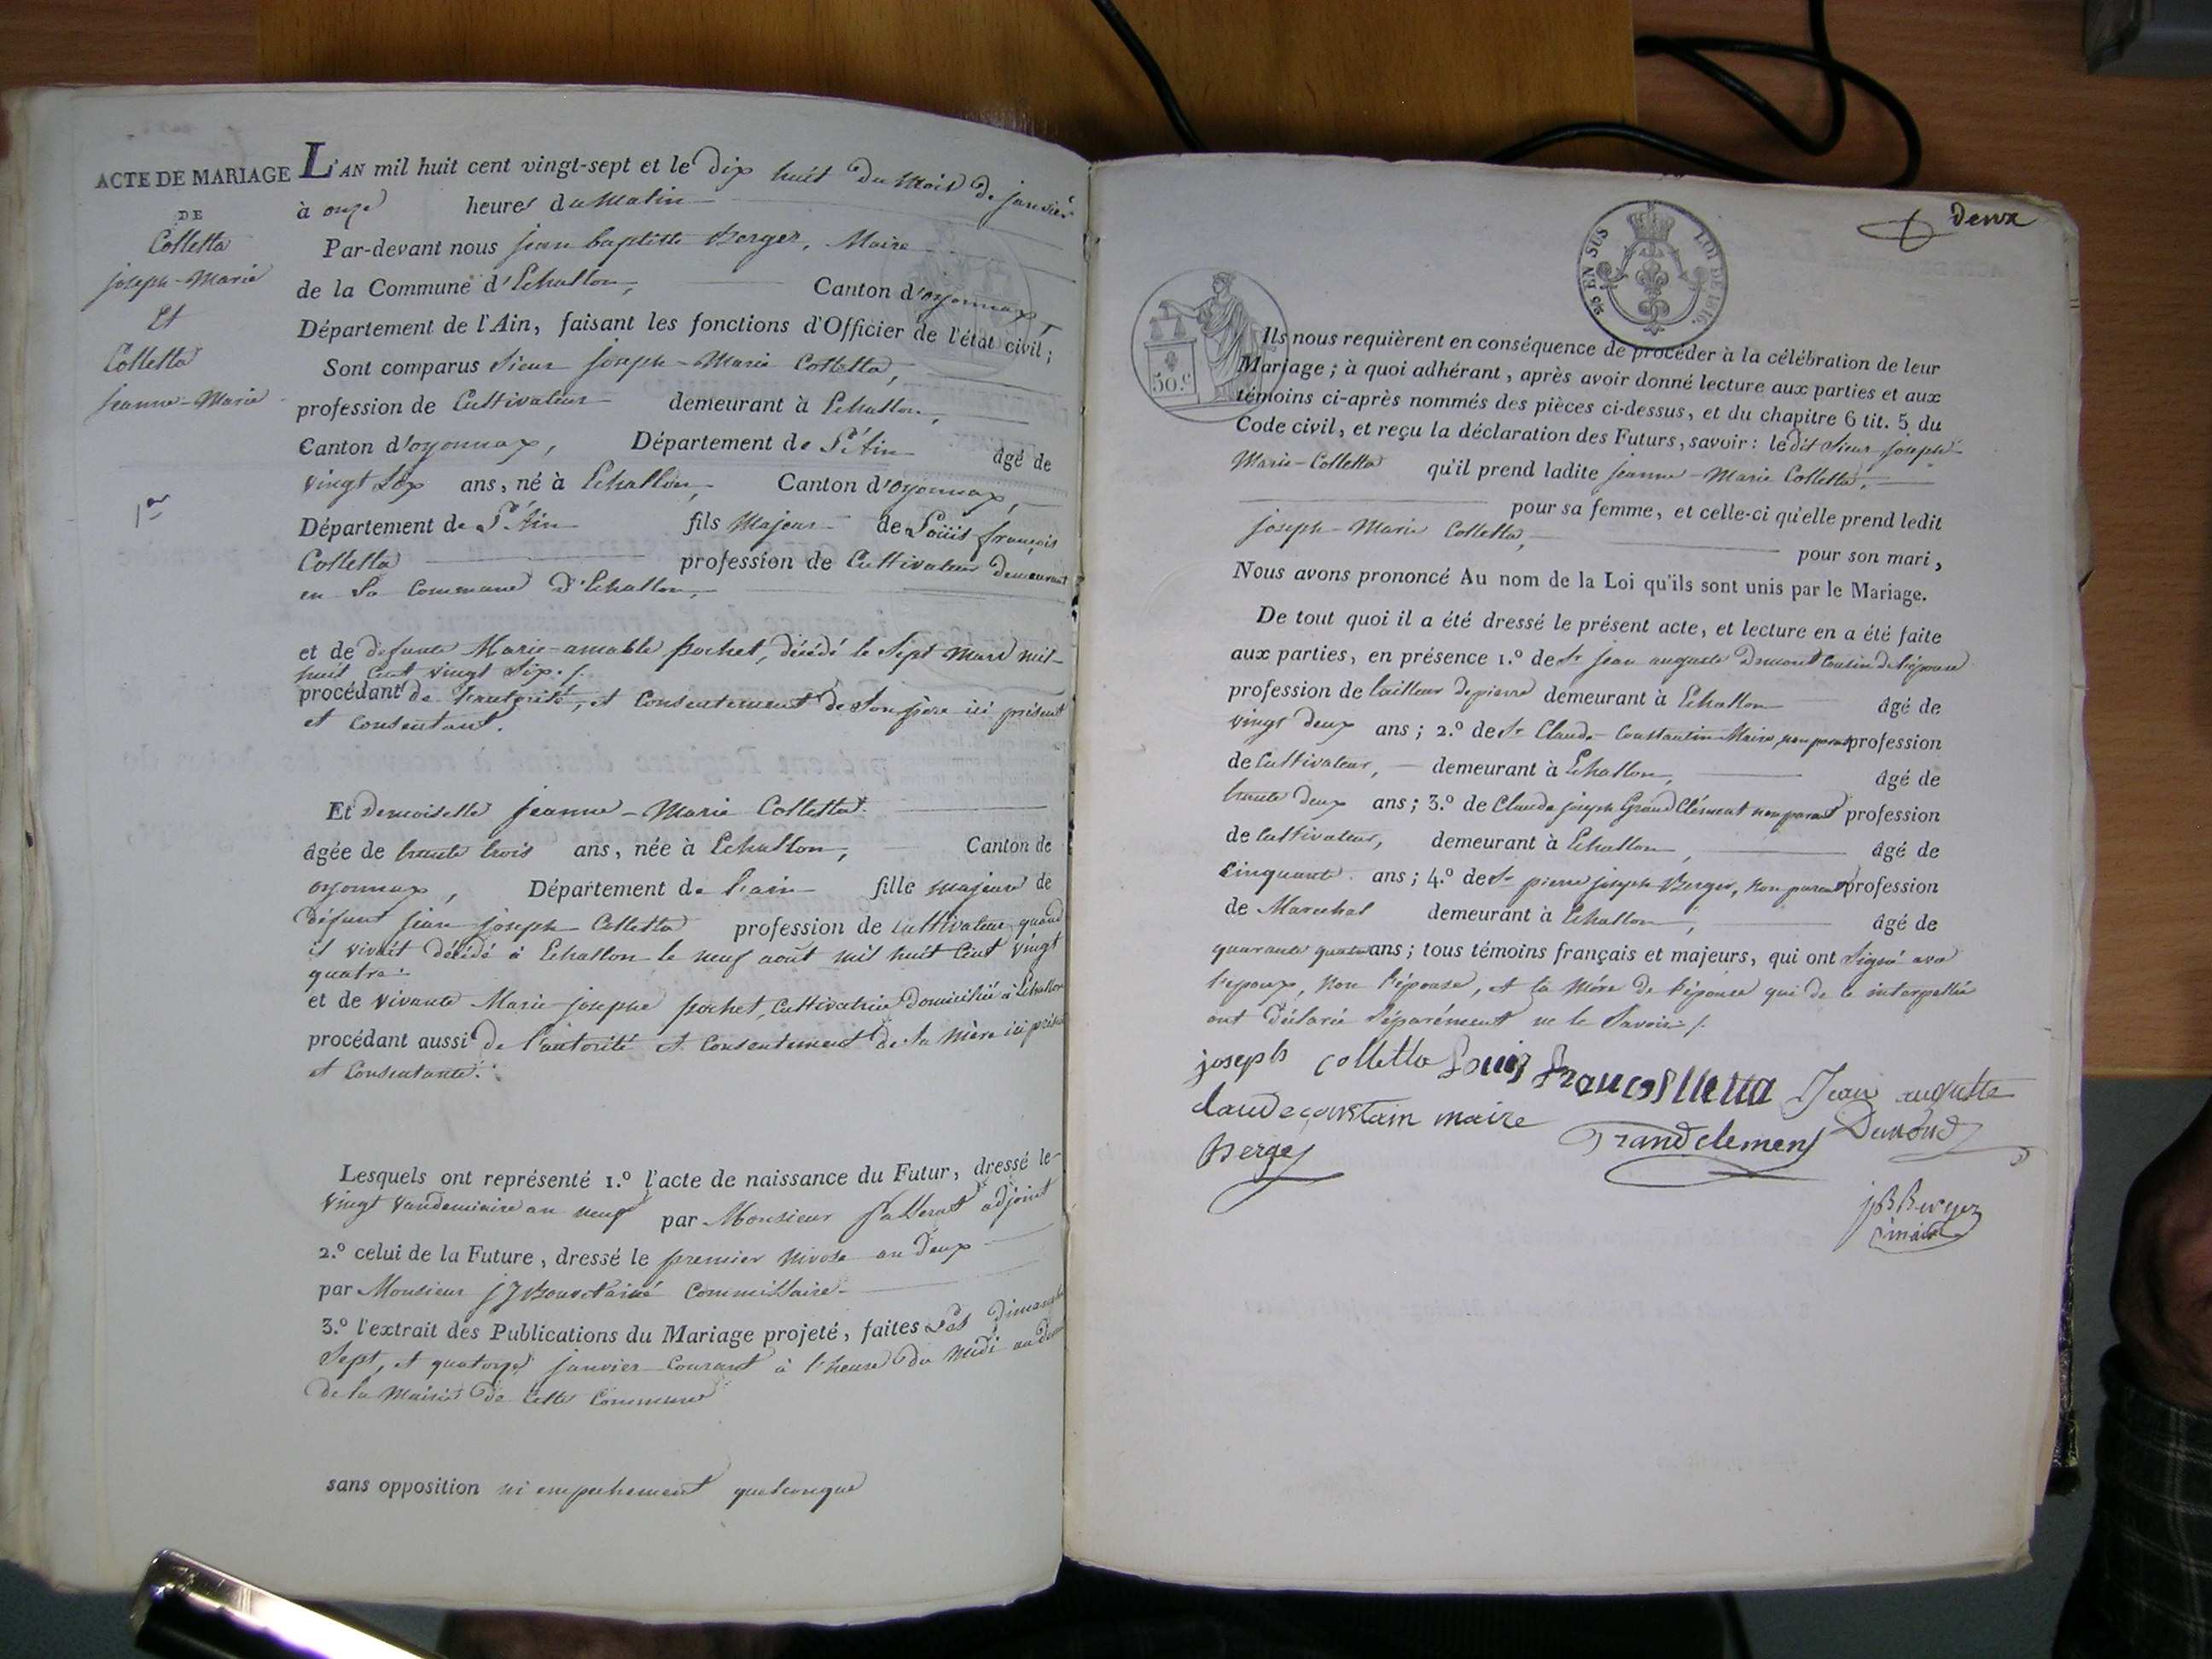 ACTE DE MARIAGE
DE
Colletta
joseph-Marie
Et
Colletta
jeanne-Marie
1er
L'AN mil huit cent vingt-sept et le dix huit du mois de janvier
à onze heures du matin
Par-devant nous jean baptiste Berger, Maire
de la Commune d'Echallon, Canton d'oyonnax,
Département de l'Ain, faisant les fonctions d'Officier de l'état civil;
Sont comparus Sieur joseph-Marie Colletta,
profession de Cultivateur demeurant à Echallon,
Canton d'oyonnax, Département de l'Ain âgé de
vingt six ans, né à Echallon, Canton d'oyonnax,
Département de l'Ain fils Majeur de Loüis françois
Colletta profession de Cultivateur demeurant
en la Commune d'Echallon,
et de defunte Marie-amable pochet, décédé le Sept Mars mil
huit Cent vingt Six./.
procédant de l'autorité, et Consentement de Son père ici présent
et Consentant.
Et demoiselle jeanne-Marie Colletta
âgée de trente trois ans, née à Echallon, Canton de
oyonnax, Département de l'ain fille majeure de
défunt jean joseph Colletta profession de cultivateur quand
il vivait décédé à Echallon le neuf août mil huit Cent vingt
quatre.
et de vivante Marie-josephe pochet, Cultivatrice domiciliée à Echallon
procédant aussi de l'autorité et Consentement de Sa Mère ici présente
et Consentante.
Lesquels ont représenté 1.º l'acte de naissance du Futur, dressé le
vingt vandemiaire an neuf par Monsieur adjoint
2.º celui de la Future, dressé le premier nivose an deux
par Monsieur Commissaire
3.º l'extrait des Publications du Mariage projeté, faites Les dimanches
Sept, et quatorze janvier Courant à l'heure du Midi au devant
de la Mairie de Cette Commune
sans opposition ni empechement quelconque
deux
EN SUS LOI DE 1816.
50.c
Ils nous requièrent en conséquence de procéder à la célébration de leur
Mariage; à quoi adhérant, après avoir donné lecture aux parties et aux
témoins ci-après nommés des pièces ci-dessus, et du chapitre 6 tit. 5 du
Code civil, et reçu la déclaration des Futurs, savoir: ledit Sieur joseph-
Marie-Colletta qu'il prend ladite jeanne-Marie Colletta,
pour sa femme, et celle-ci qu'elle prend ledit
joseph-Marie Colletta, pour son mari,
Nous avons prononcé Au nom de la Loi qu'ils sont unis par le Mariage.
De tout quoi il a été dressé le présent acte, et lecture en a été faite
aux parties, en présence 1.º de Sr jean auguste Dunond Cousin de l'épouse
profession de tailleur de pierre demeurant à Echallon âgé de
vingt deux ans; 2.º de Sr Claude Constantin Maire, non parent profession
de Cultivateur, demeurant à Echallon, âgé de
trente deux ans; 3.º de Claude joseph Grand Clément non parent profession
de Cultivateur, demeurant à Echallon, âgé de
Cinquante ans; 4.º de Sr pierre joseph Berger, non parent profession
de Marechal demeurant à Echallon, âgé de
quarante quatre ans; tous témoins français et majeurs, qui ont Signé avec
l'epoux, non l'épouse, et la mère de l'épouse qui de ce interpellée
ont déclaré Séparément ne le Savoir./.
joseph colletta Louis Francos lletta Jean auguste
claude constain maire Grandclement Dunond
Berger
jB Berger
maire